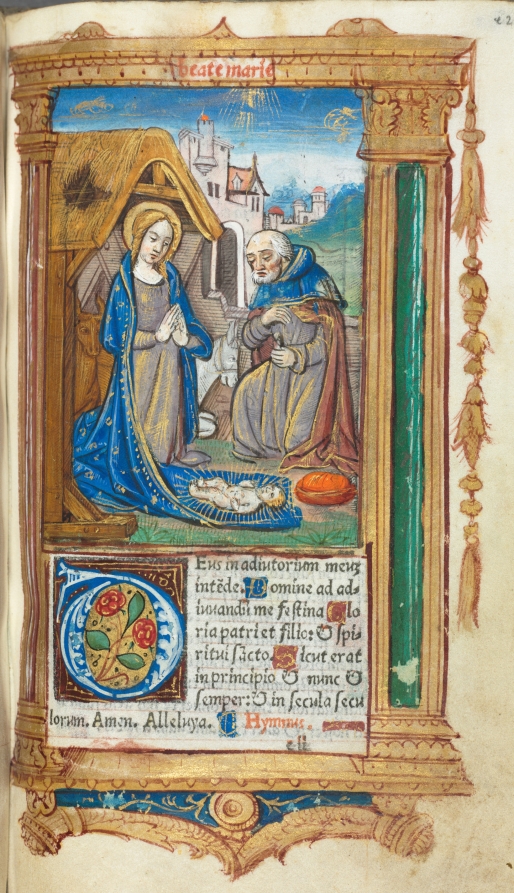 beate marie
Eus in adiutorium meuʒ
intẽde. Domine ad ad-
iuuandũ me festina Glo
ria patri et filio: & spi-
ritui sãcto. Sicut erat
in principio & nunc &
semper: & in secula secu
lorum. Amen. Alleluya. Hymnus